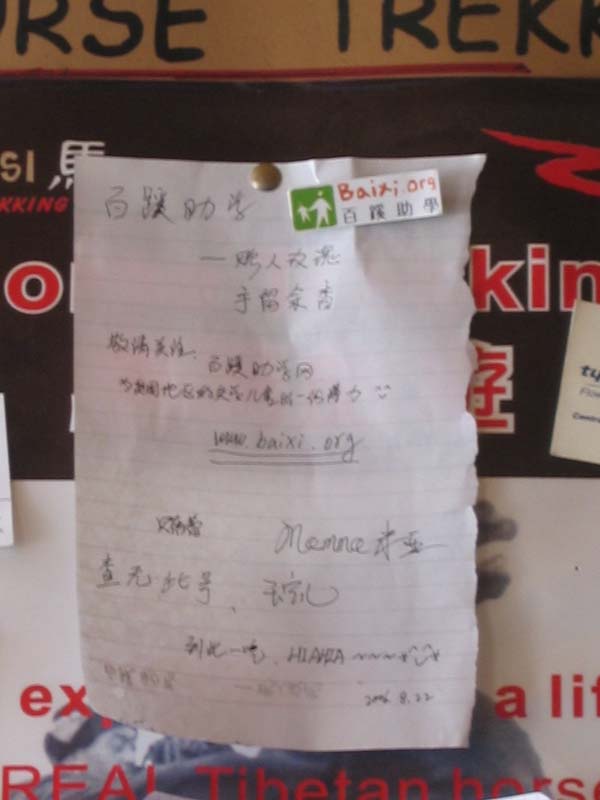 ORSE TREKK
SI 馬
KKING
百蹊助学
Baixi.org
百蹊助學
—赐人玫瑰
手留余香
敬请关注：百蹊助学网
为贫困地区的失学儿童出一份薄力
www.baixi.org
查无此号、
到此一吃、HIAHIA~~~
2006.8.22
kin
游
ty
Centra
ex
a lif
REAL Tibetan horse